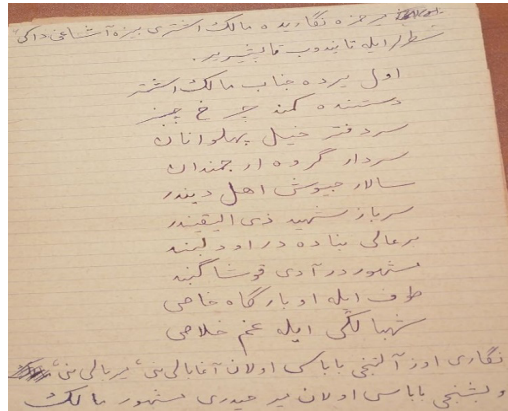 میر حمزه نگاری ده مالک اشتری بیزه آشاغی داکی
شطرلر ایله تا پیشیریر.
اول یرده جناب مالک اشتر
دستنده کمند چرخ چنبر
سردفتر خیل پهلوانان
سردار گروه ارجمندان
سالار جیوش اهل دیندر
سرباز شهید ذی الیقیندر
بر عالی بناده در او دلبند
مشهور در آدی قوشا گنبد
طوف ایله او بارگاه خاصی
شهبالگی ایله غم خلاصی
نگاری اوز آلتنجی باباسی اولان آغابالی نی، میر بالی نی،
و بشنجی باباسی اولان میر حیدری مشهور مالک